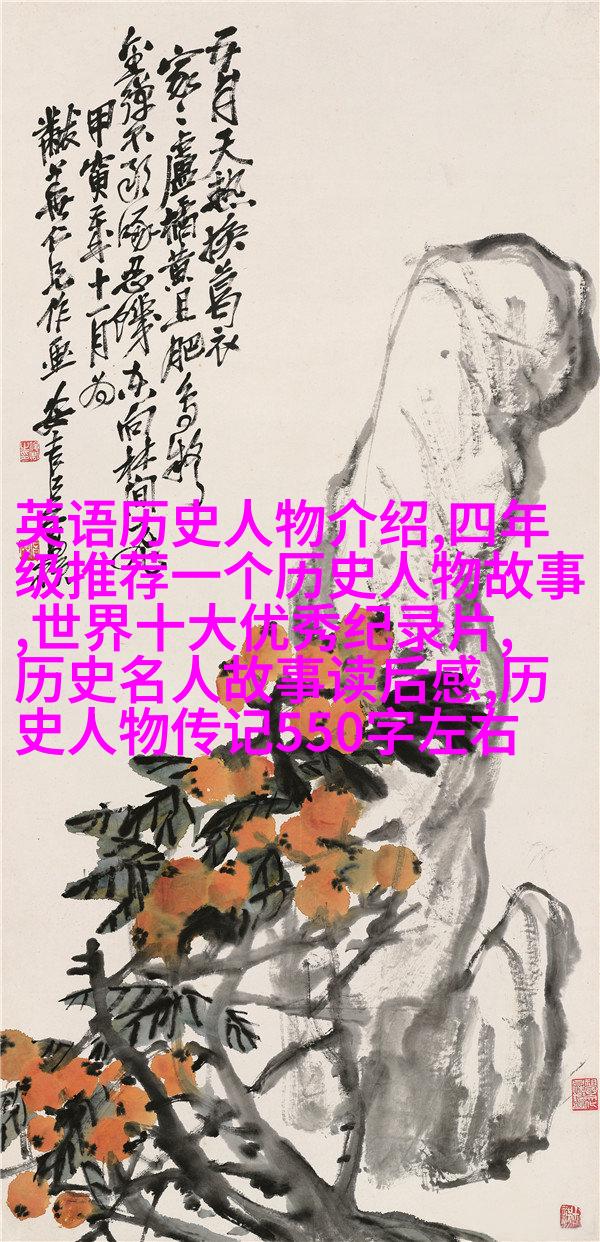 五月天熱換葛衣
家〻盧橘黃且肥鳥疑
金彈不敢啄忍饑空向林間飛
甲寅十一月為
仁兄作畫安吉吳昌碩
英语历史人物介绍,四年
级推荐一个历史人物故事
,世界十大优秀纪录片,
历史名人故事读后感,历
史人物传记550字左右